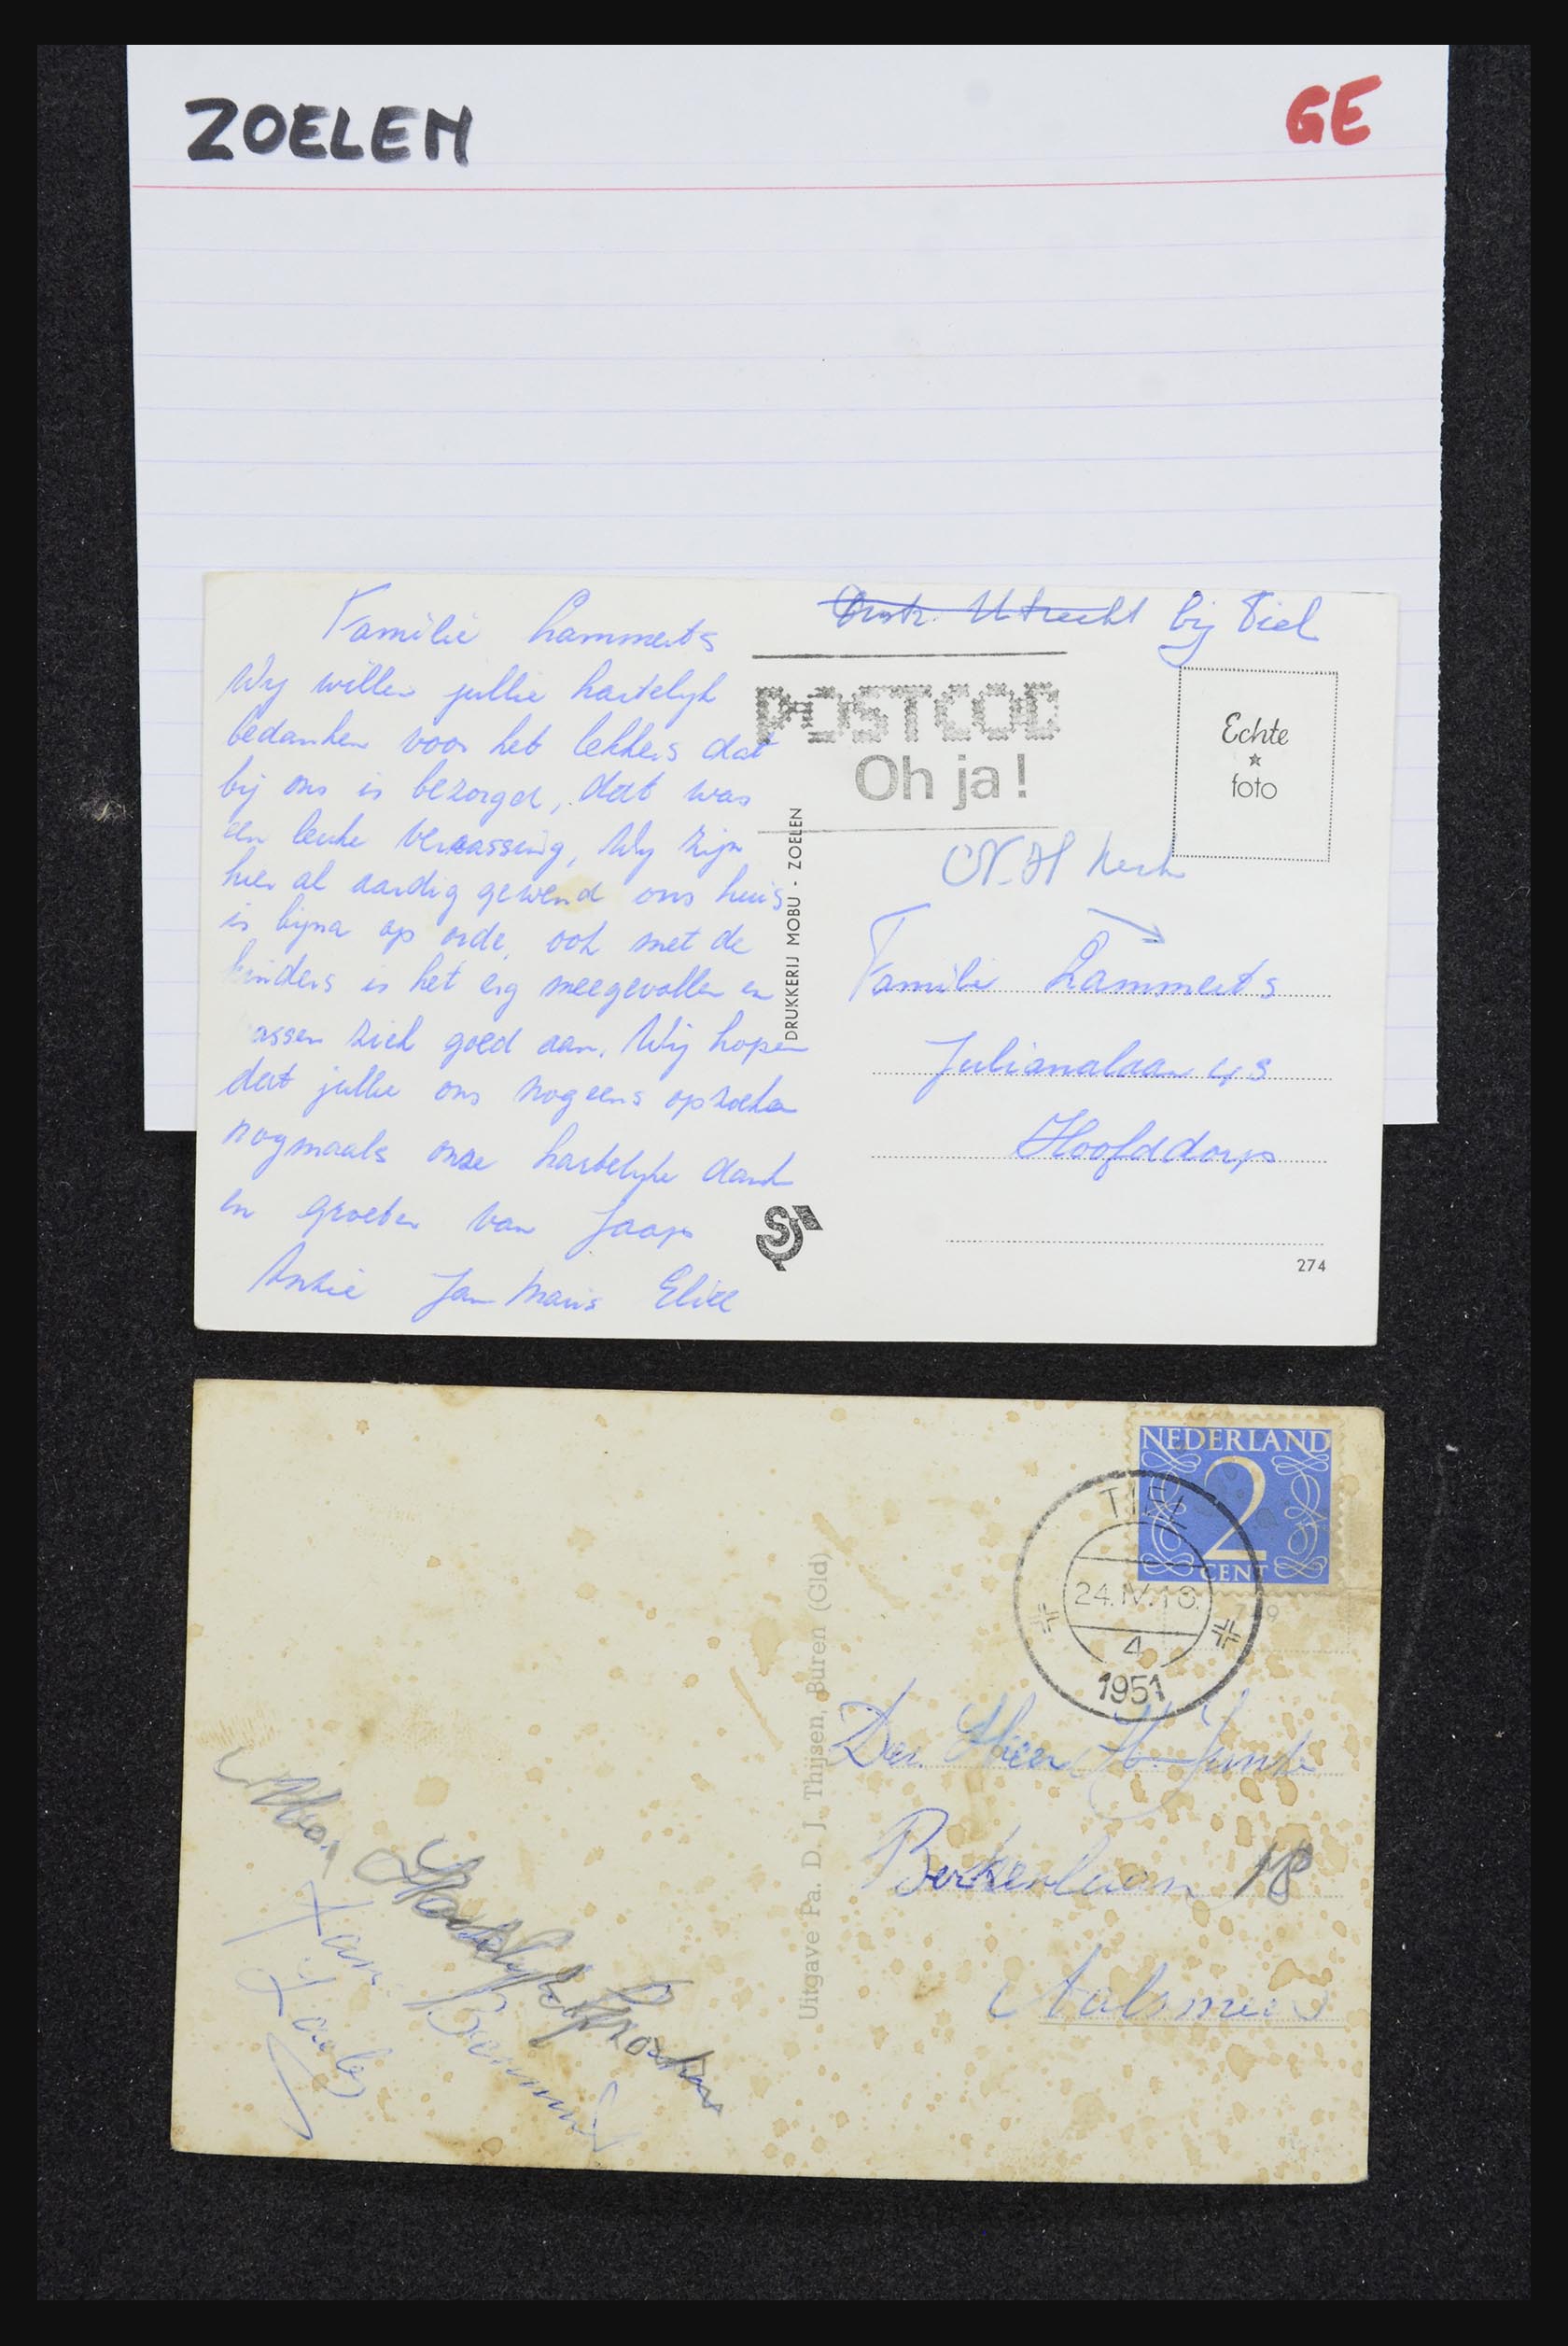 ZOELEN
GE
Familie Lammerts
Wij willen jullie hartelijk
bedanken voor het lekkers dat
bij ons is bezorgd, dat was
een leuke verrassing, Wij zijn
hier al aardig gewend ons huis
is bijna op orde, ook met de
kinders is het erg meegevallen en
assen zich goed aan. Wij hopen
dat jullie ons nog eens opzoeken
nogmaals onze hartelyke dank
en groeten van Jaap
Jan Maris
Utrecht bij Tiel
POSTCODE
Oh ja!
Echte
foto
N.H Kerk
DRUKKERIJ MOBU - ZOELEN
Familie Lammerts
Julianalaan
Hoofddorp
274
NEDERLAND
2
CENT
TIEL
24.IV.18.
4
1951
Uitgave Fa. D. J. Thijsen, Buren (Gld)
Den Heer H.
Berkenlaan 18
Aalsmeer
Hartelijke groeten